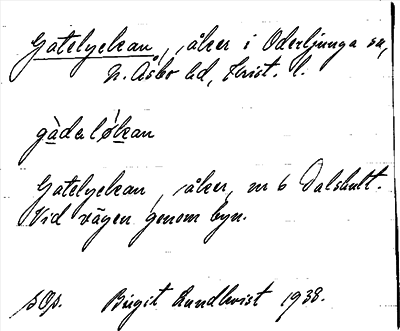 Gatelyckan, åker i Oderljunga sn,
N. Åsbo hd, Krist. l.
gàdeløkan
Gatelyckan, åker, nr 6 Dalshult.
Vid vägen genom byn.
sOp. Birgit Rundkvist 1938.